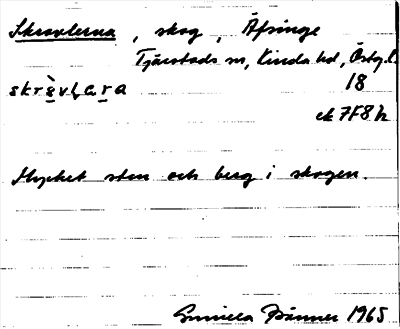 Skravlerna, skog, Äfsinge
Tjärstads sn, Kinda hd, Östg. l.
skrèvlara 18
ek 7F8h
Mycket sten och berg i skogen.
Gunilla 1965